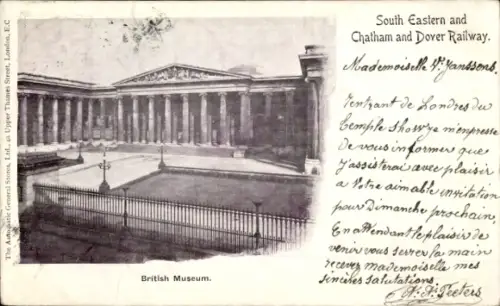 South Eastern and
Chatham and Dover Railway.
Mademoiselle V. Janssons.
rentrant de Londres du
Temple Show je m'empresse
de vous informer que
j'assisterai avec plaisir
a Votre aimable invitation
pour Dimanche prochain,
En attendant le plaisir de
venir vous serrer la main
recevez mademoiselle mes
sincères salutations.
A. Peeters
British Museum.
The Automatic General Stores, Ltd., 21 Upper Thames Street, London, E.C